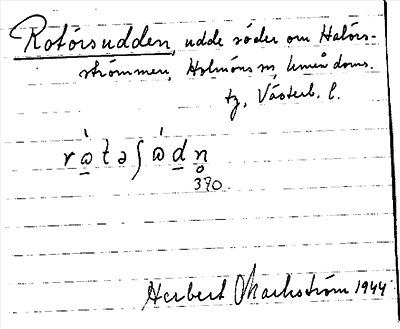 Rotörsudden, udde söder om Halörs-
strömmen, Holmöns sn, Umeå doms.
tg, Västerb. l.
370.
Herbert Markström 1944